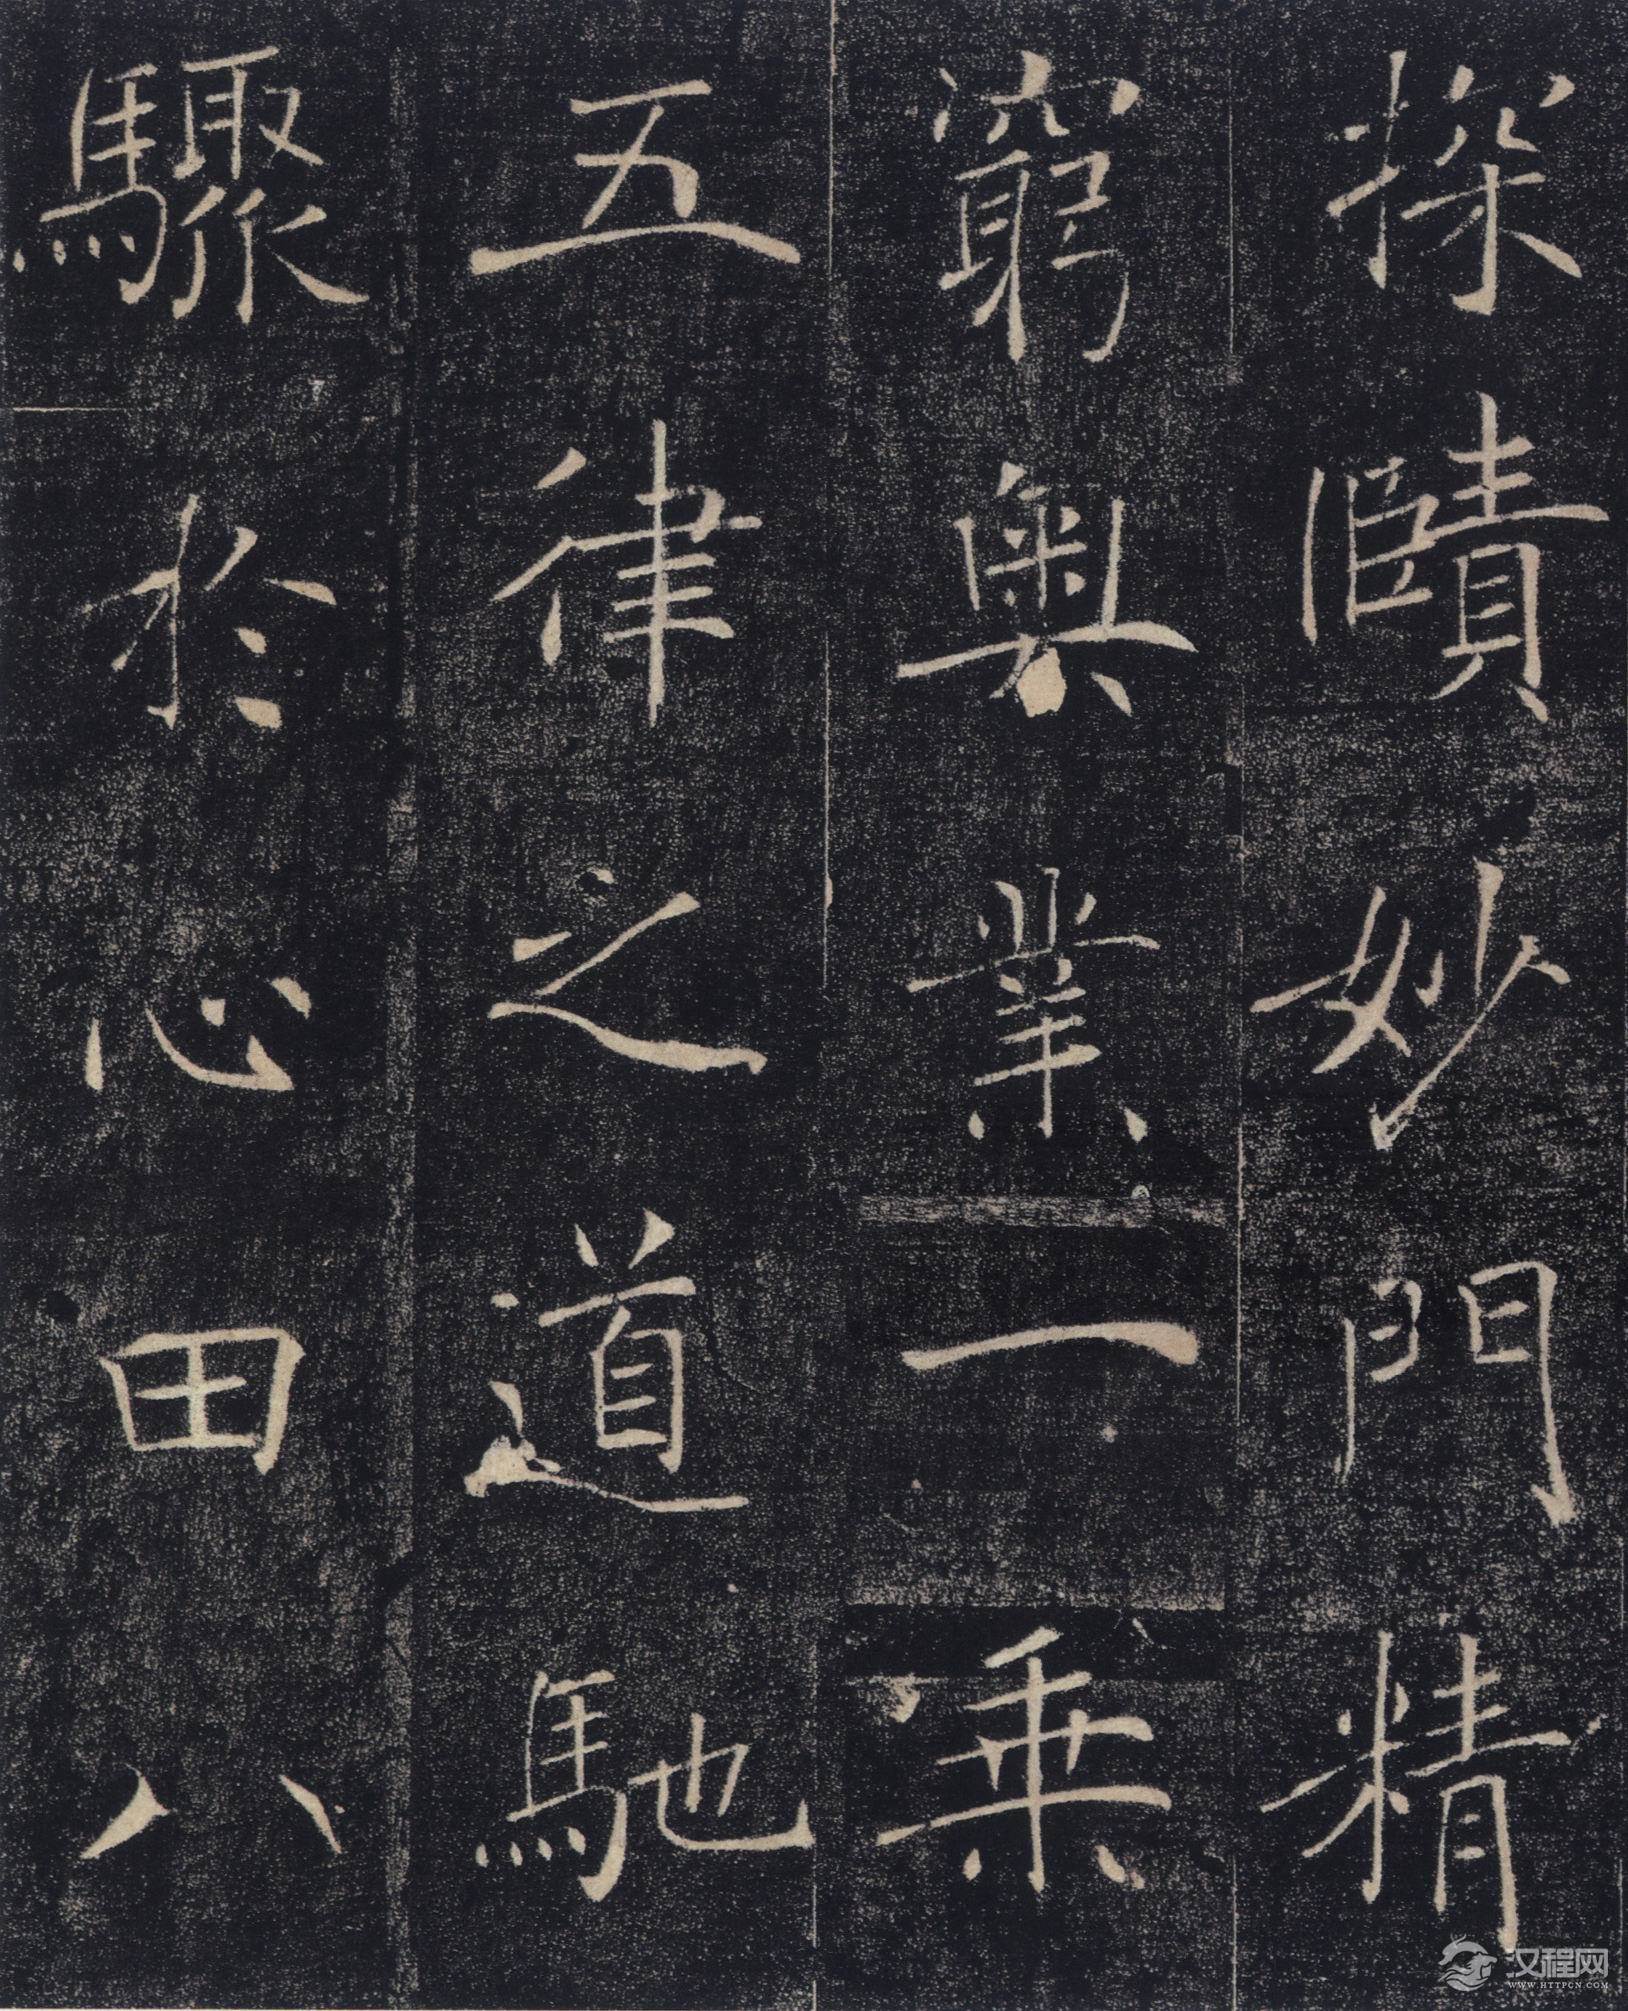 探賾妙門精
窮奧業一乘
五律之道馳
驟於心田八
汉程网
WWW.HTTPCN.COM